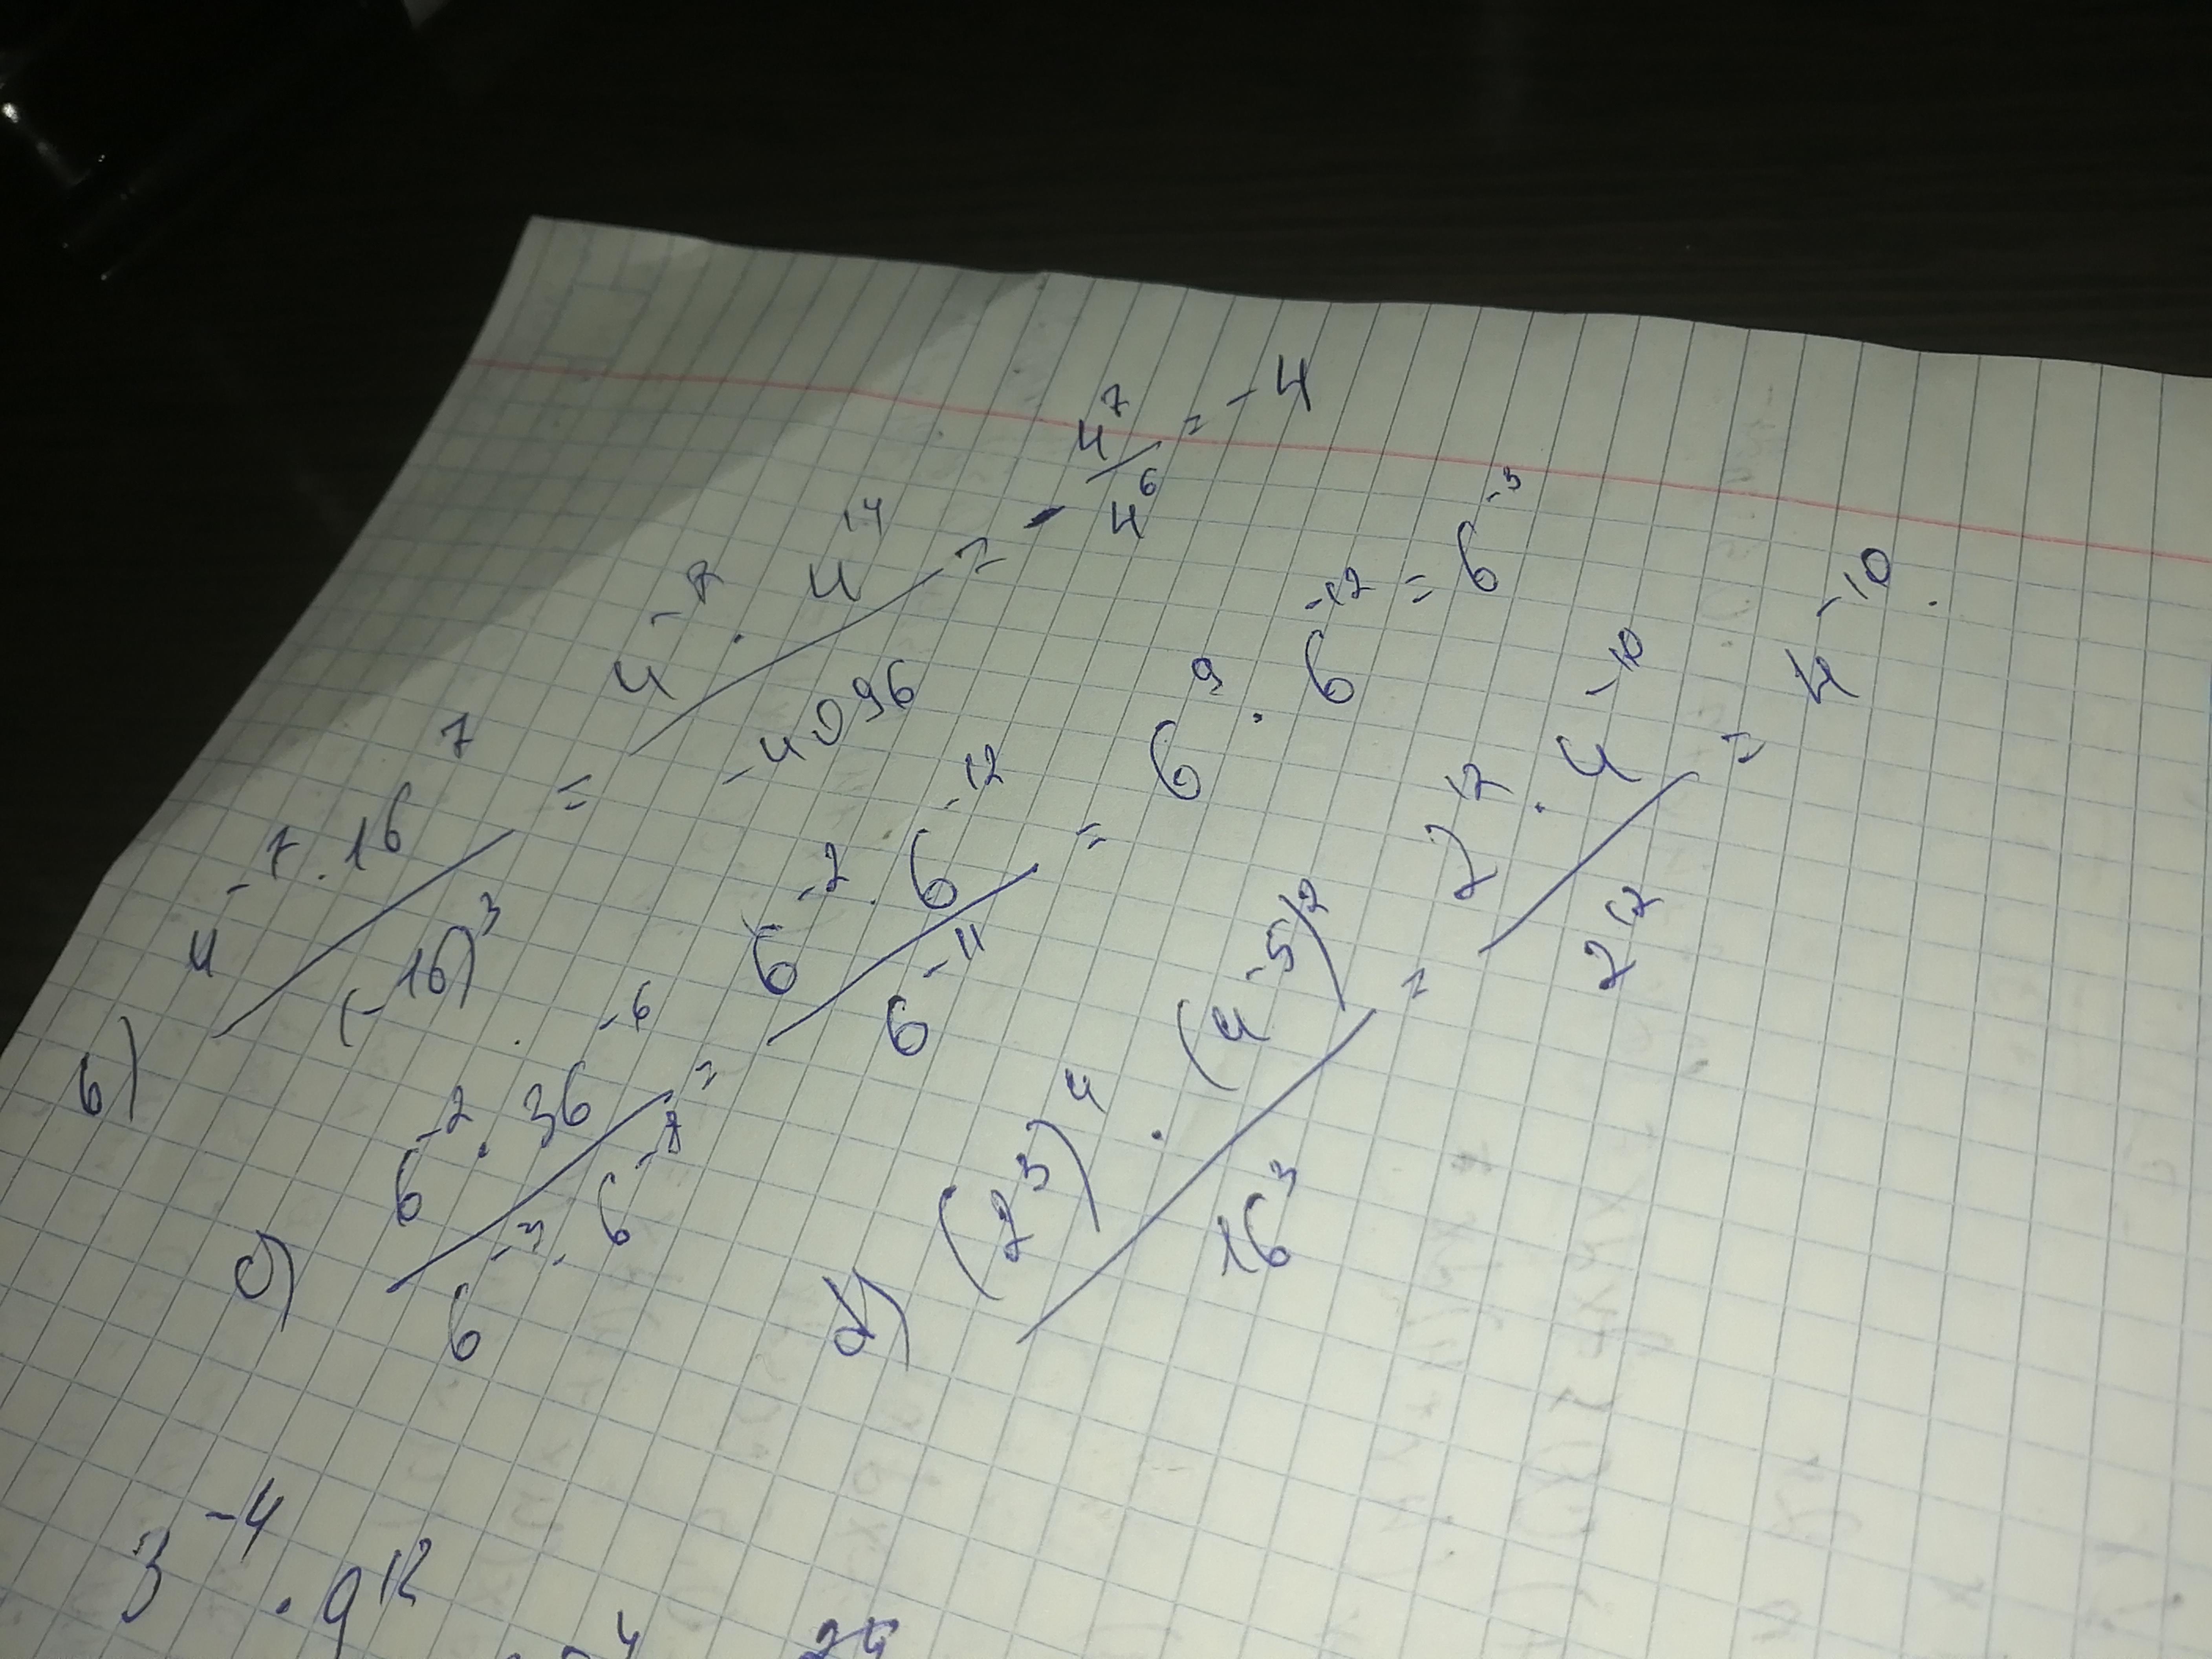 b) 4^-7 · 16^7 / (-16)^3 = 4^-7 · 4^14 / -4096 = - 4^7 / 4^6 = -4
c) 6^-2 · 36^-6 / 6^-3 · 6^-8 = 6^-2 · 6^-12 / 6^-11 = 6^9 · 6^-12 = 6^-3
d) (2^3)^4 · (4^-5)^2 / 16^3 = 2^12 · 4^-10 / 2^12 = 4^-10 .
3^-4 · 9^12